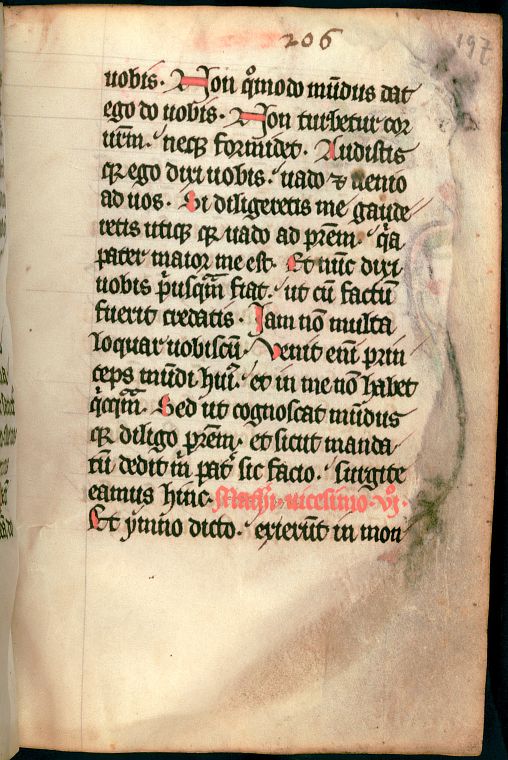 206
197
uobis. Non qͦmodo mūdus dat
ego do uobis. Non turbetur cor
urm̄. neqꝫ formidet. Audistis
qꝫ ego dixi uobis. uado ⁊ uenio
ad uos. Si diligeretis me gaude
retis utiqꝫ qꝫ uado ad prēm. qͣa
pater maior me est. Et nūc dixi
uobis pͥusqm̄ fiat. ut cū factū
fuerit credatis. Iam nō multa
loquar uobiscū. Venit eni᷒ prin
ceps mūdi huiꝰ. et in me nō habet
qͥcqm̄. Sed ut cognoscat mūdus
qꝫ diligo prēm. et sicut manda
tū dedit m̄ pat̄ sic facio. surgite
eamus hinc. Mathͥ. uicesimo. vjͦ.
Et ẏmno dicto. exierūt in mon